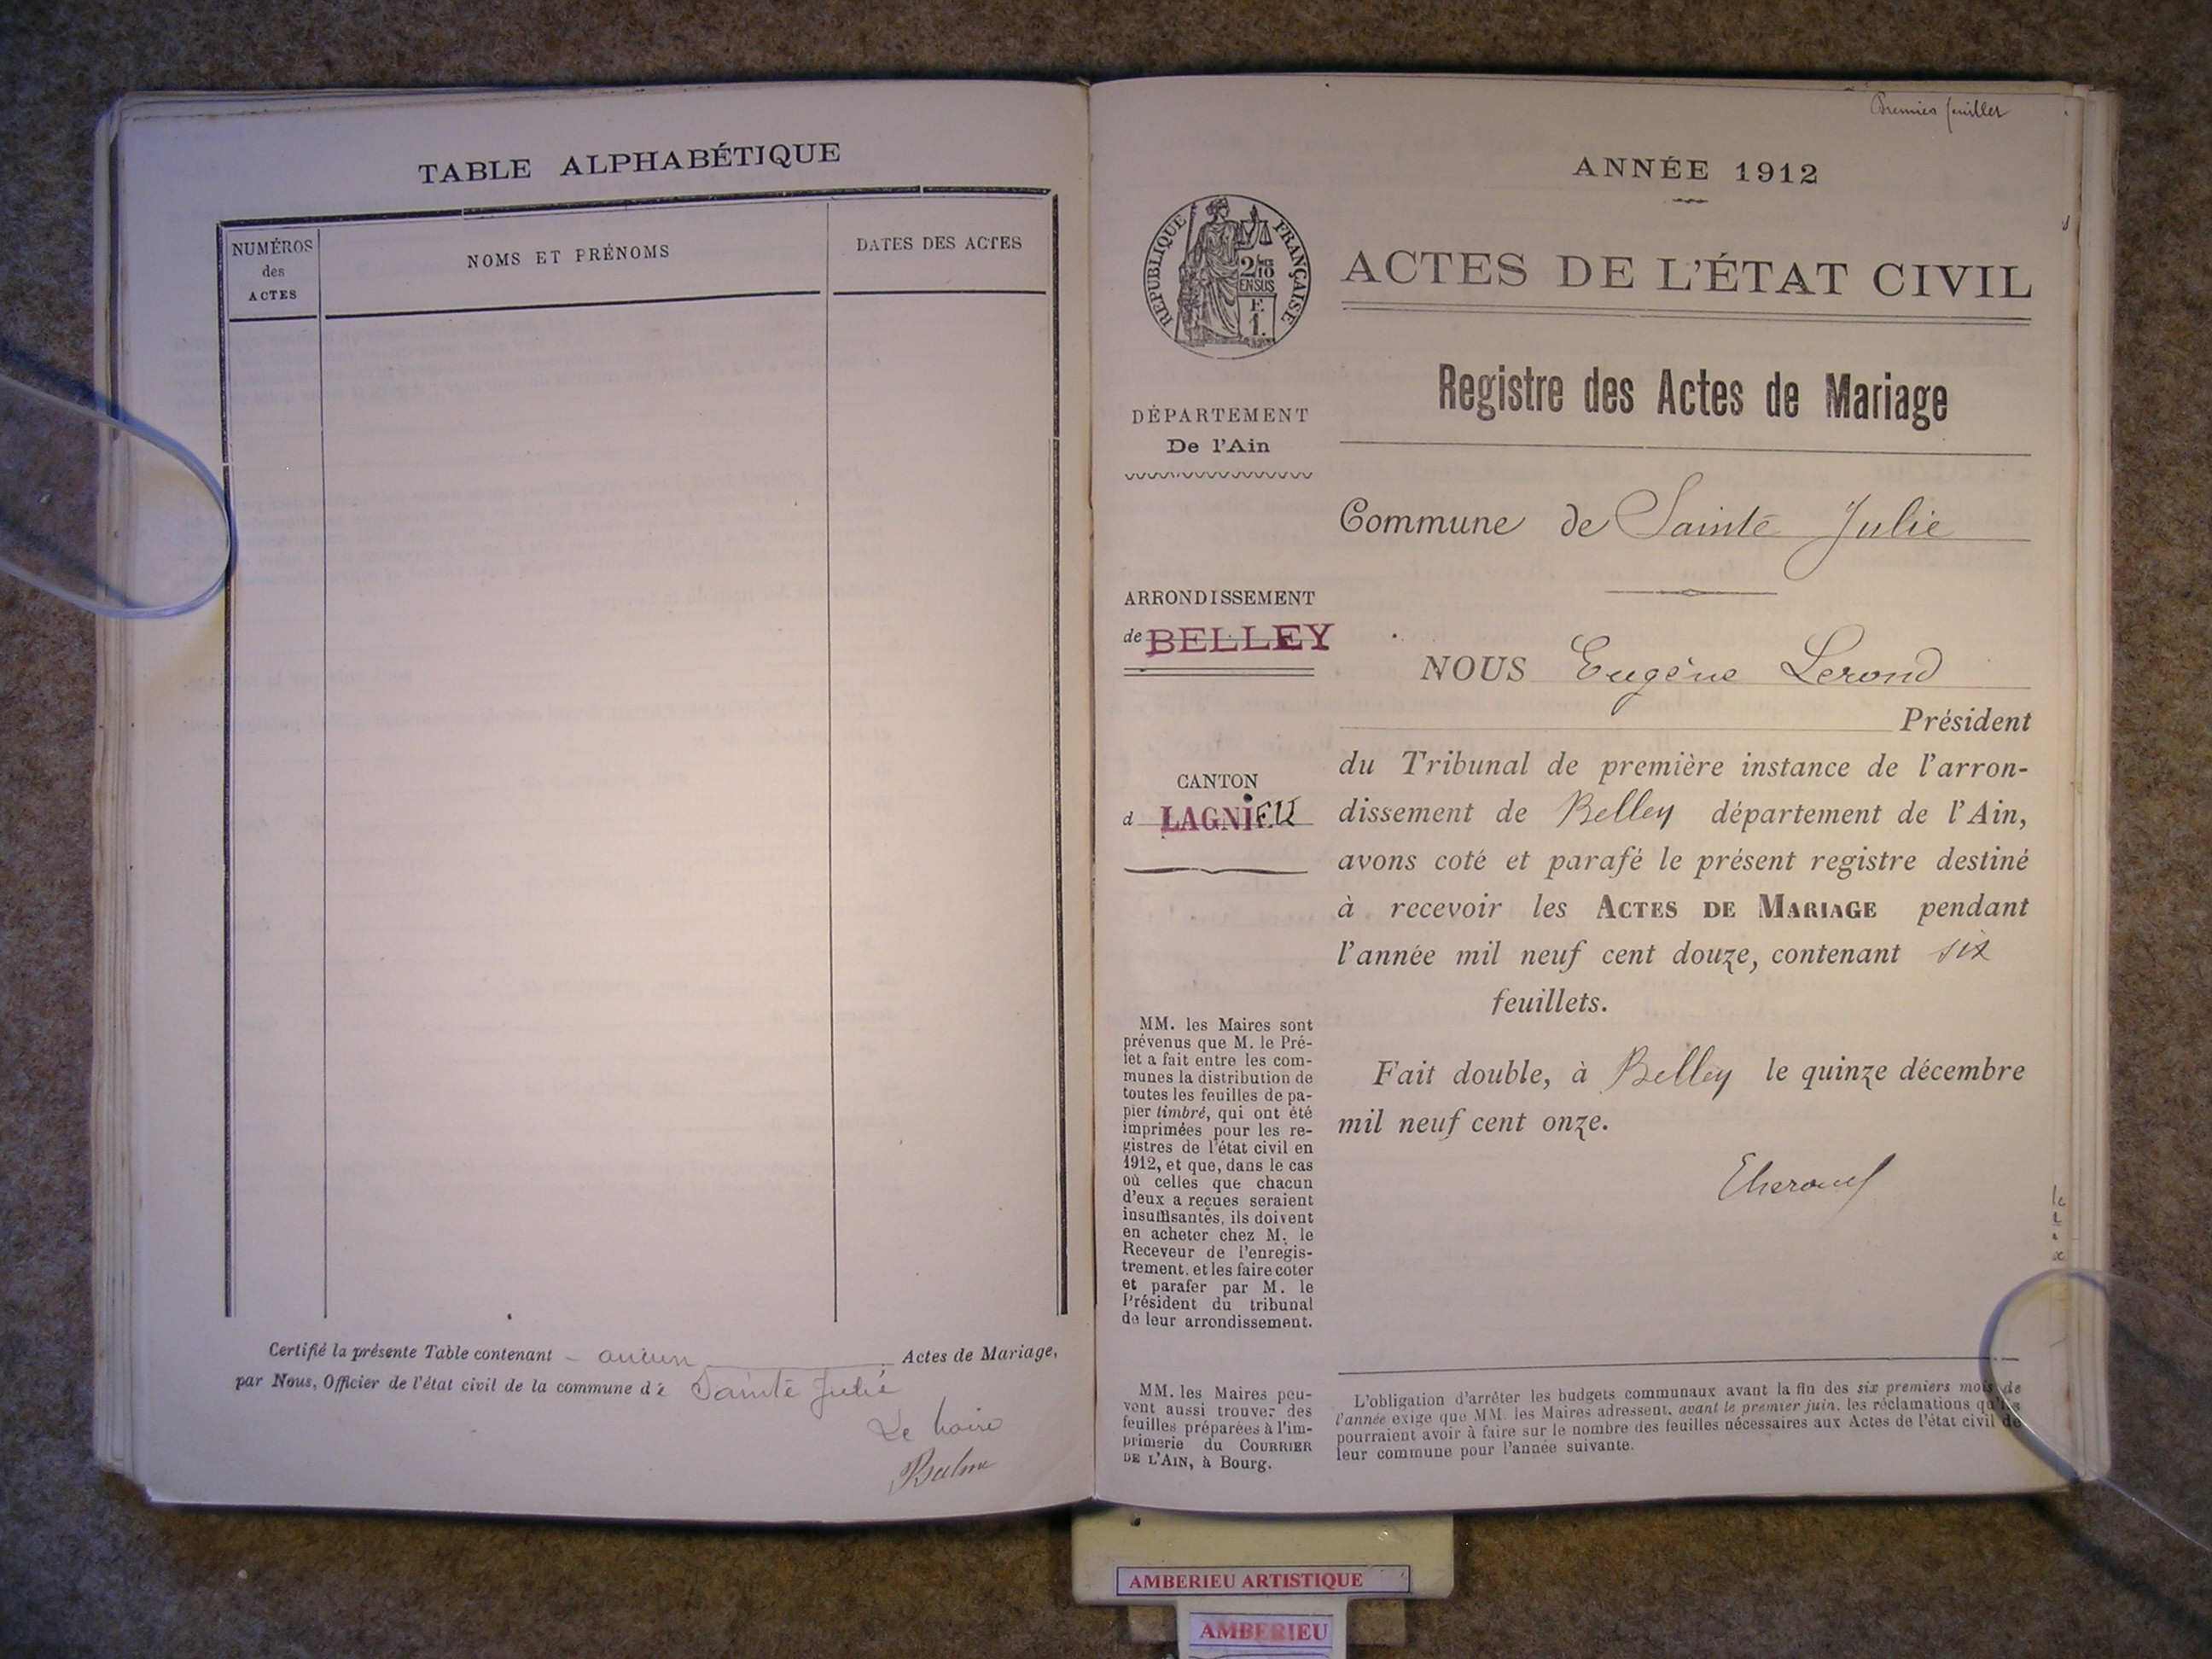 TABLE ALPHABÉTIQUE
NUMÉROS
des
ACTES
NOMS ET PRÉNOMS
DATES DES ACTES
Certifié la présente Table contenant - aucun Actes de Mariage,
par Nous, Officier de l'état civil de la commune de Sainte Julie
Le Maire
Premier feuillet
ANNÉE 1912
RÉPUBLIQUE FRANÇAISE
2/10
EN SUS
F.
1.
ACTES DE L'ÉTAT CIVIL
Registre des Actes de Mariage
DÉPARTEMENT
De l'Ain
Commune de Sainte Julie
ARRONDISSEMENT
de BELLEY
NOUS Eugène Lerond
Président
du Tribunal de première instance de l'arron-
CANTON
d LAGNIEU
dissement de Belley département de l'Ain,
avons coté et parafé le présent registre destiné
à recevoir les ACTES DE MARIAGE pendant
l'année mil neuf cent douze, contenant six
feuillets.
Fait double, à Belley le quinze décembre
mil neuf cent onze.
MM. les Maires sont
prévenus que M. le Pré-
fet a fait entre les com-
munes la distribution de
toutes les feuilles de pa-
pier timbré, qui ont été
imprimées pour les re-
gistres de l'état civil en
1912, et que, dans le cas
où celles que chacun
d'eux a reçues seraient
insuffisantes, ils doivent
en acheter chez M. le
Receveur de l'enregis-
trement, et les faire coter
et parafer par M. le
Président du tribunal
de leur arrondissement.
MM. les Maires peu-
vent aussi trouver des
feuilles préparées à l'im-
primerie du COURRIER
DE L'AIN, à Bourg.
L'obligation d'arrêter les budgets communaux avant la fin des six premiers mois de
l'année exige que MM. les Maires adressent, avant le premier juin, les réclamations qu'ils
pourraient avoir à faire sur le nombre des feuilles nécessaires aux Actes de l'état civil de
leur commune pour l'année suivante.
AMBERIEU ARTISTIQUE
AMBERIEU